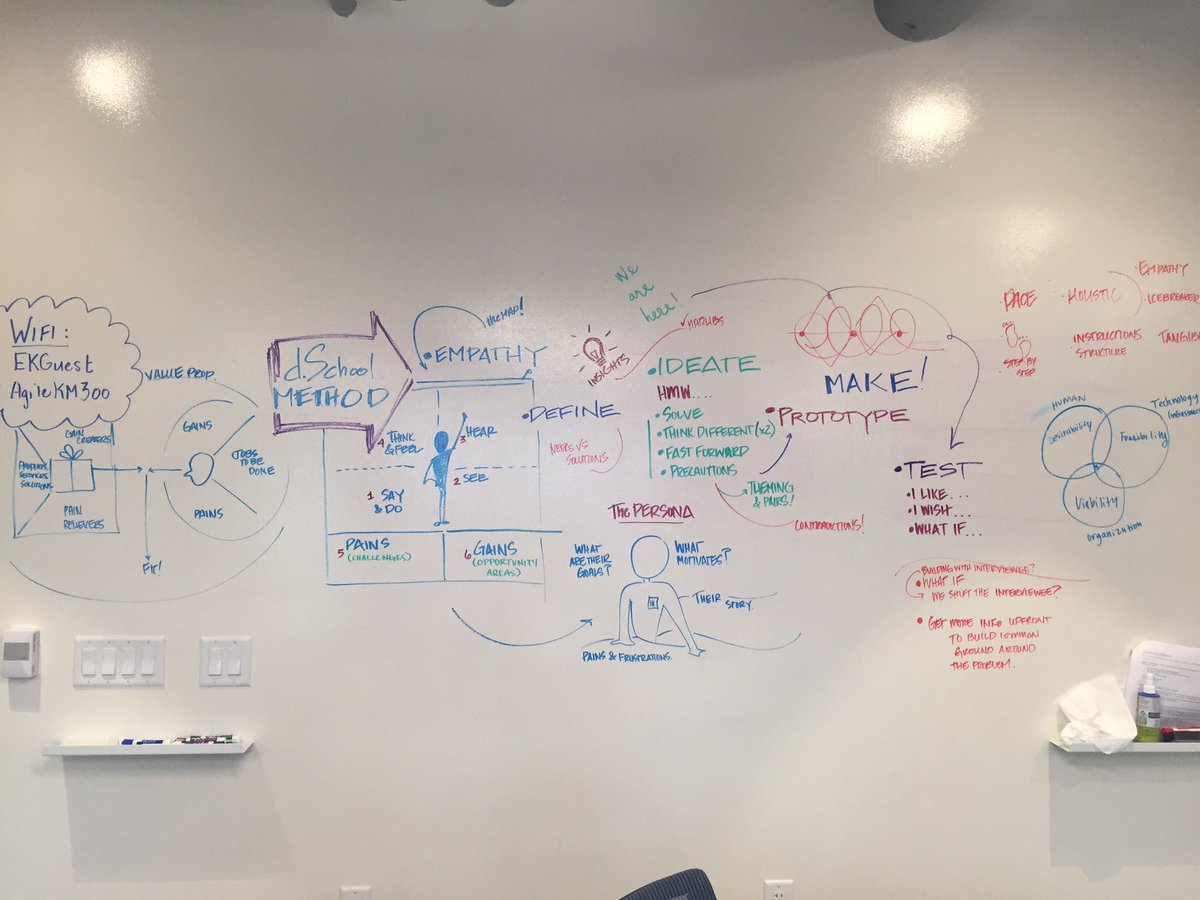 WIFI:
EKGuest
AgileKM300
VALUE PROP.
GAIN
CREATORS
PRODUCTS
SERVICES
SOLUTIONS
PAIN
RELIEVERS
GAINS
JOBS
TO BE
DONE
PAINS
FIT!
d.School
METHOD
the MAP!
• EMPATHY
4 THINK
& FEEL
3 HEAR
1 SAY
& DO
2 SEE
5 PAINS
(CHALLENGES)
6 GAINS
(OPPORTUNITY
AREAS)
• DEFINE
NEEDS VS
SOLUTIONS
INSIGHTS
We
are
here!
• IDEATE
HMW....
• SOLVE
• THINK DIFFERENT (x2)
• FAST FORWARD
• PRECAUTIONS
THEMING
& PAIRS!
CONTRADICTIONS!
The PERSONA
WHAT
ARE THEIR
GOALS?
WHAT
MOTIVATES?
THEIR STORY.
PAINS & FRUSTRATIONS.
MAKE!
• PROTOTYPE
• TEST
• I LIKE...
• I WISH...
• WHAT IF...
BUILDING WITH INTERVIEWEE?
• WHAT IF
WE SHIFT THE INTERVIEWEE?
• GET MORE INFO UPFRONT
TO BUILD COMMON
GROUND AROUND
THE PROBLEM.
STEP BY
STEP
HOLISTIC
INSTRUCTIONS
STRUCTURE
• EMPATHY
• ICEBREAKER
HUMAN
Desirability
Technology
Feasibility
Viability
organization